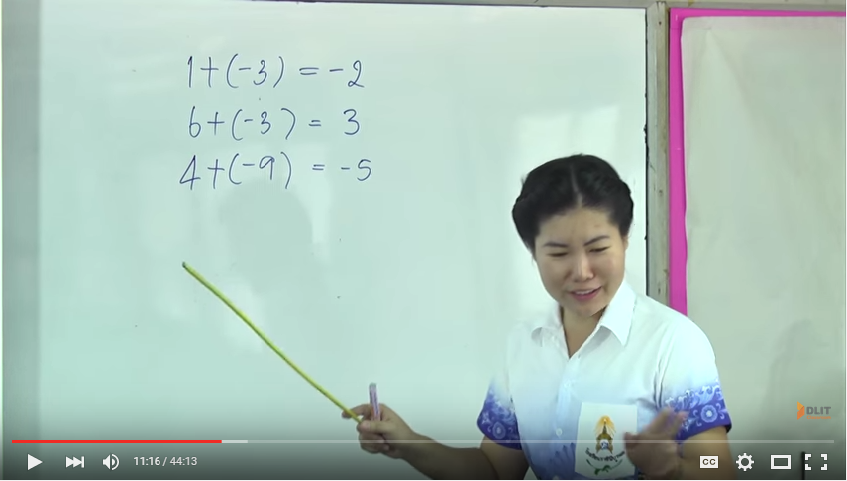 1+(-3) = -2
6+(-3) = 3
4+(-9) = -5
DLIT
11:16 / 44:13
CC